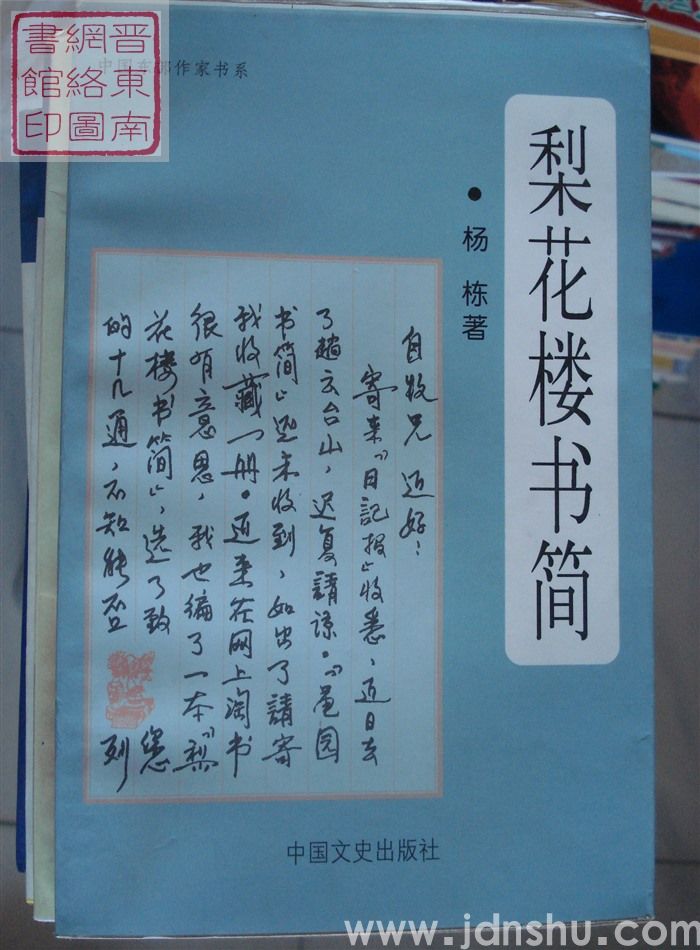 晋東南
網絡圖
書館印
中国东部作家书系
梨花楼书简
●杨栋著
自牧兄 近好：
寄来《日記报》收悉，近日去
了趟云台山，迟复請谅。《
书简》迟未收到，如出了請寄
我收藏一册。近来在网上淘书
很有意思，我也编了一本《梨
花楼书简》，选了致 您
的十几通，不知能否 列
中国文史出版社
www.jdnshu.com